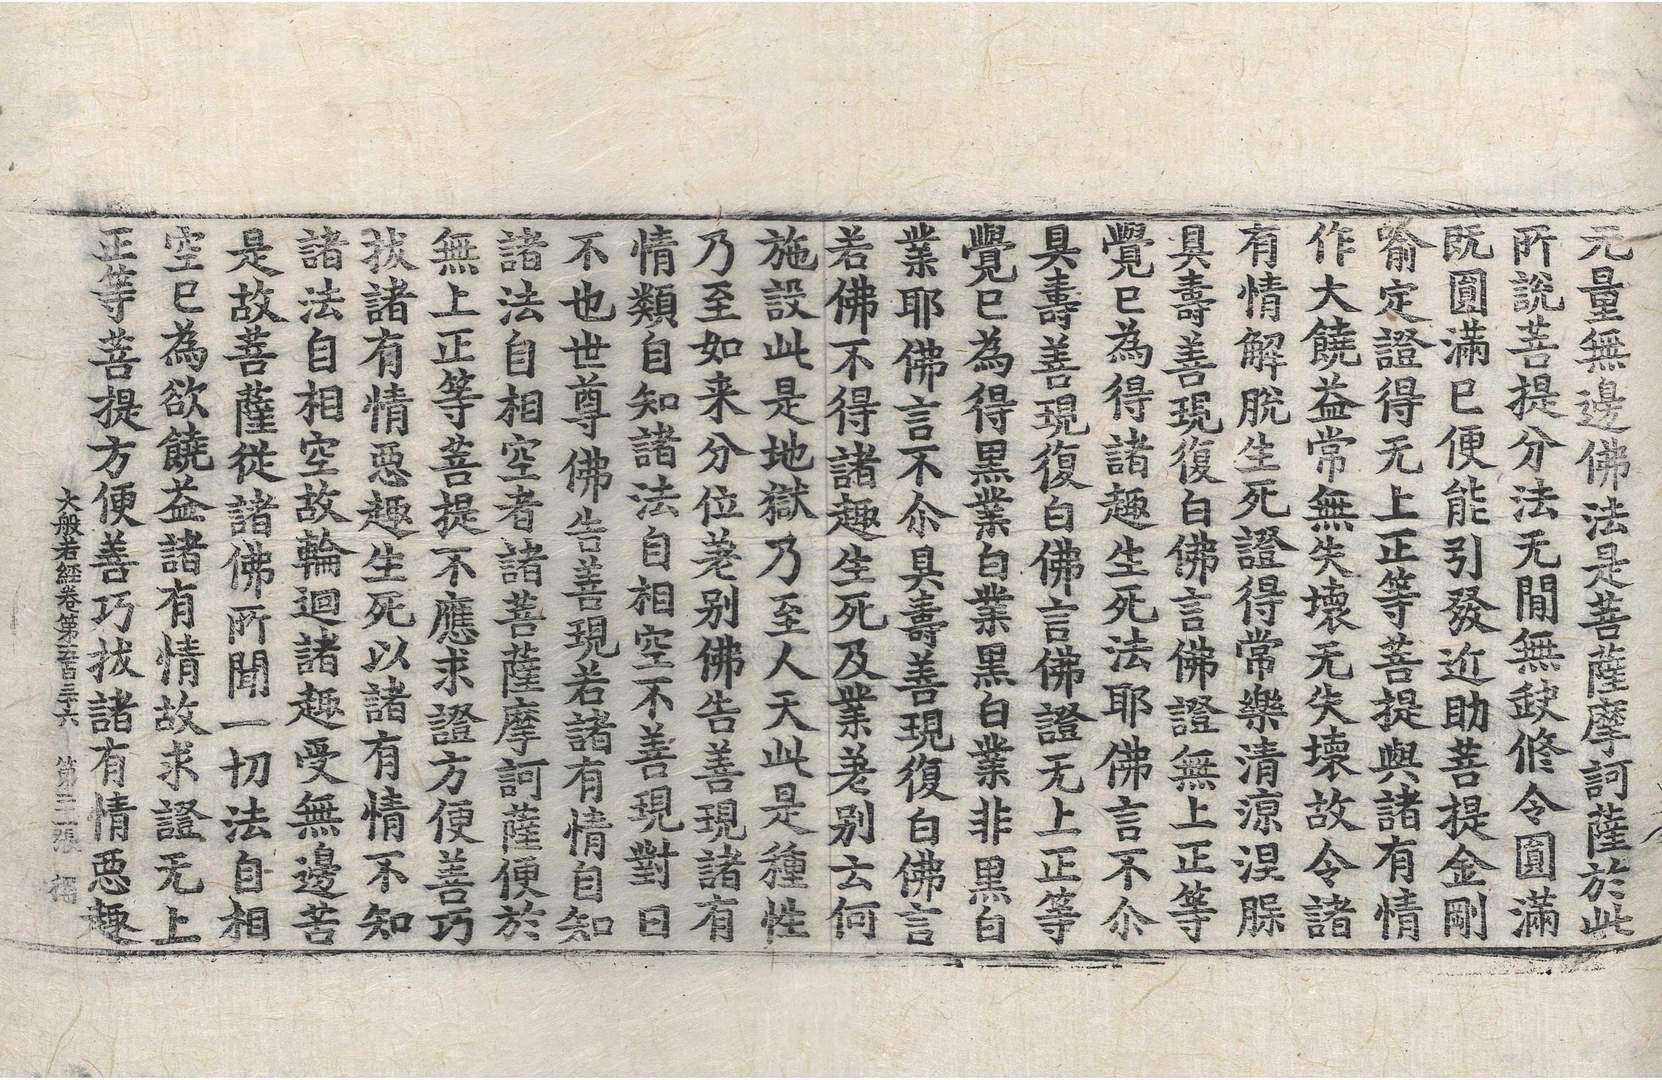 无量無邊佛法是菩薩摩訶薩於此
所說菩提分法无間無缺修令圓滿
旣圓滿已便能引發近助菩提金剛
喻定證得无上正等菩提與諸有情
作大饒益常無失壞无失壞故令諸
有情解脫生死證得常樂清涼涅脲
具壽善現復白佛言佛證無上正等
覺已為得諸趣生死法耶佛言不尒
具壽善現復白佛言佛證无上正等
覺已為得黑業白業黑白業非黑白
業耶佛言不尒具壽善現復白佛言
若佛不得諸趣生死及業差別云何
施設此是地獄乃至人天此是種性
乃至如来分位差别佛告善現諸有
情類自知諸法自相空不善現對曰
不也世尊佛告善現若諸有情自知
諸法自相空者諸菩薩摩訶薩便於
無上正等菩提不應求證方便善巧
拔諸有情惡趣生死以諸有情不知
諸法自相空故輪迴諸趣受無邊苦
是故菩薩從諸佛所聞一切法自相
空已為欲饒益諸有情故求證无上
正等菩提方便善巧拔諸有情惡趣
大般若經卷第五百三十六 第三張